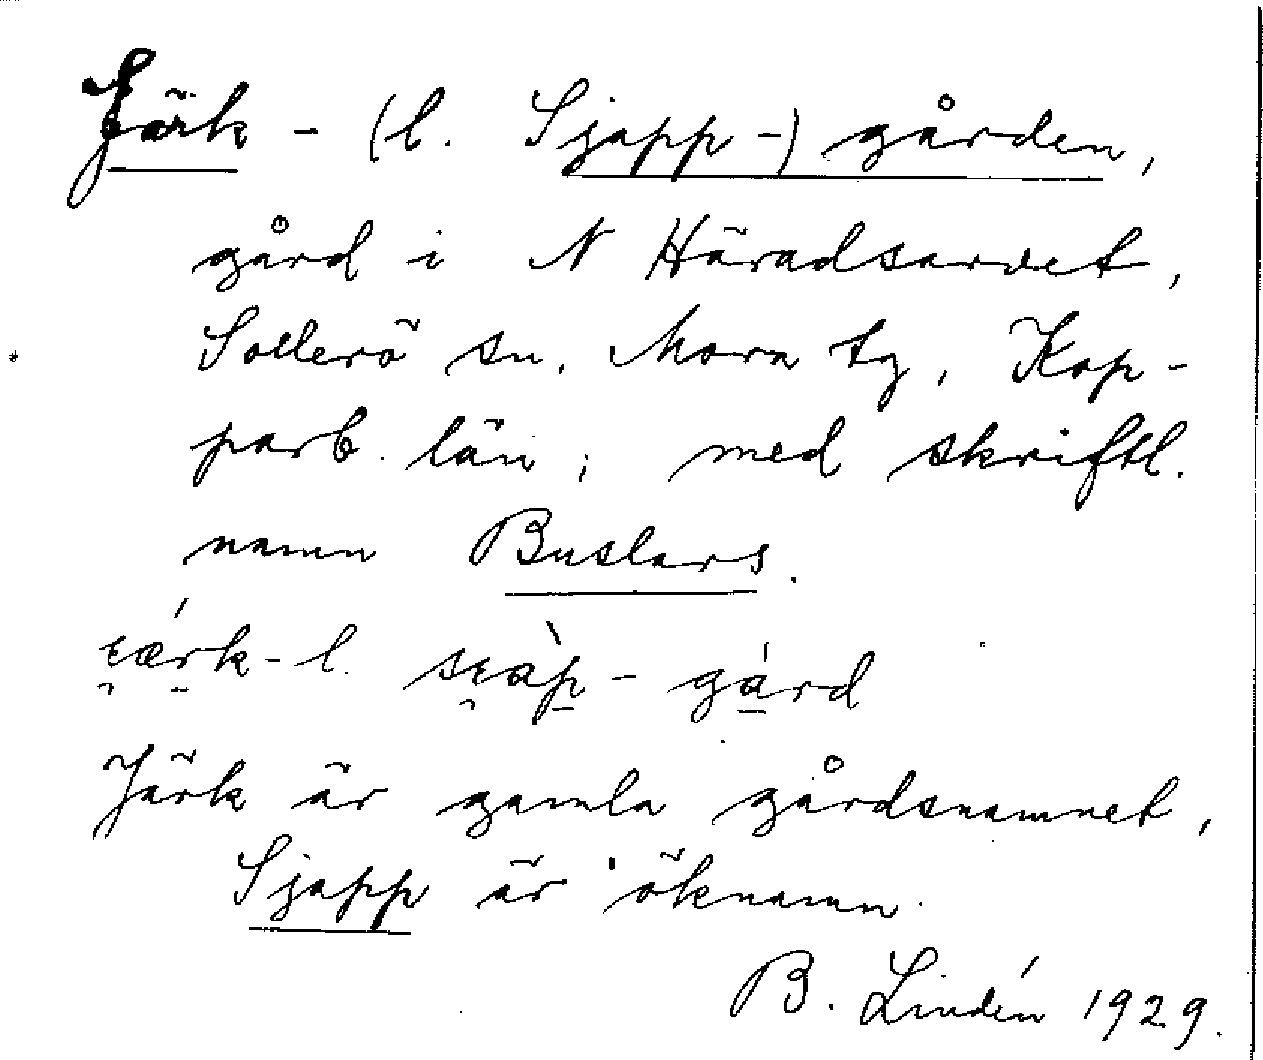 Järk - (l. Sjapp-) gården,
gård i N Häradsarvet,
Sollerö sn, Mora tg, Kop-
parb. län; med skriftl.
namn Buslars.
l. - gård
Järk är gamla gårdsnamnet,
Sjapp är öknamn.
B. Lindén 1929.